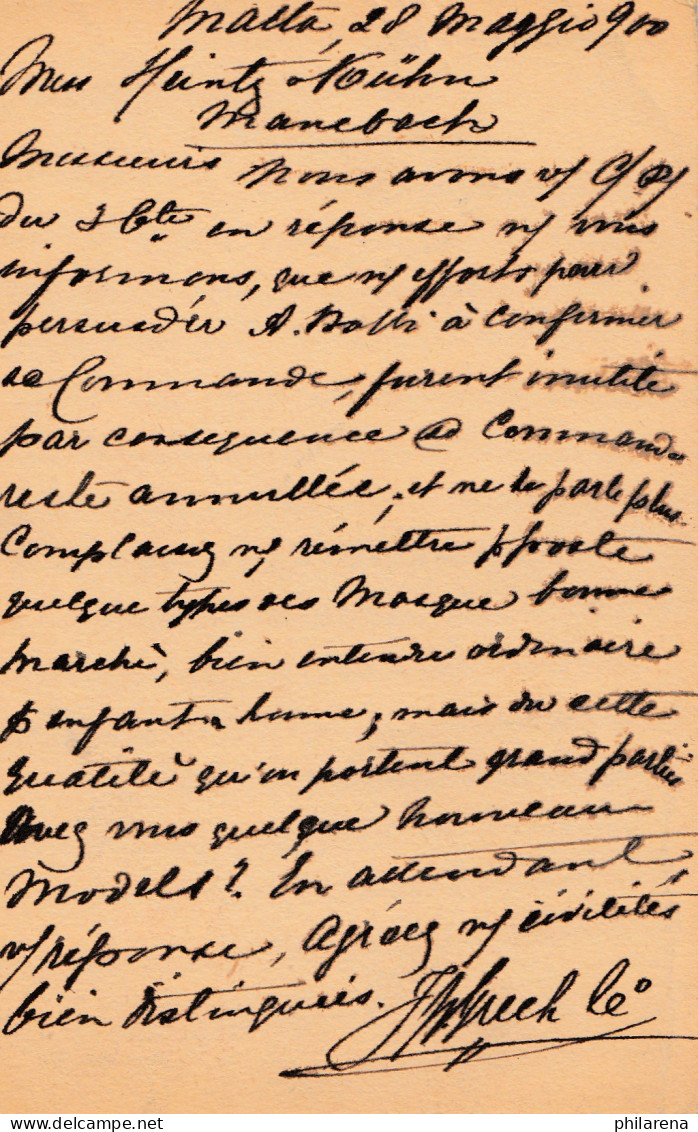 Malta, 28 Maggio 900
Mess Heintz & Kühn
Manebach
Messieurs Nous avons v/ C/P/
du 3 Cte en réponse n/ vous
informons, que n/ efforts pour
persuader A. Balbi à confirmer
sa Commande, furent inutile
par consequence sa Command
reste annullée, et ne en parle plus
Complaisez n/ rémettre p poste
quelque types des Masque bonne
Marchè, bien entendu ordinaire
p enfant & homme, mais du cette
qualitè qu'on portent grand partie
Avez vous quelque nouveau
Models? En attendant
v/ réponse, Agréez n/ civilités
bien distinguées. Grech Co
delcampe.net
philarena